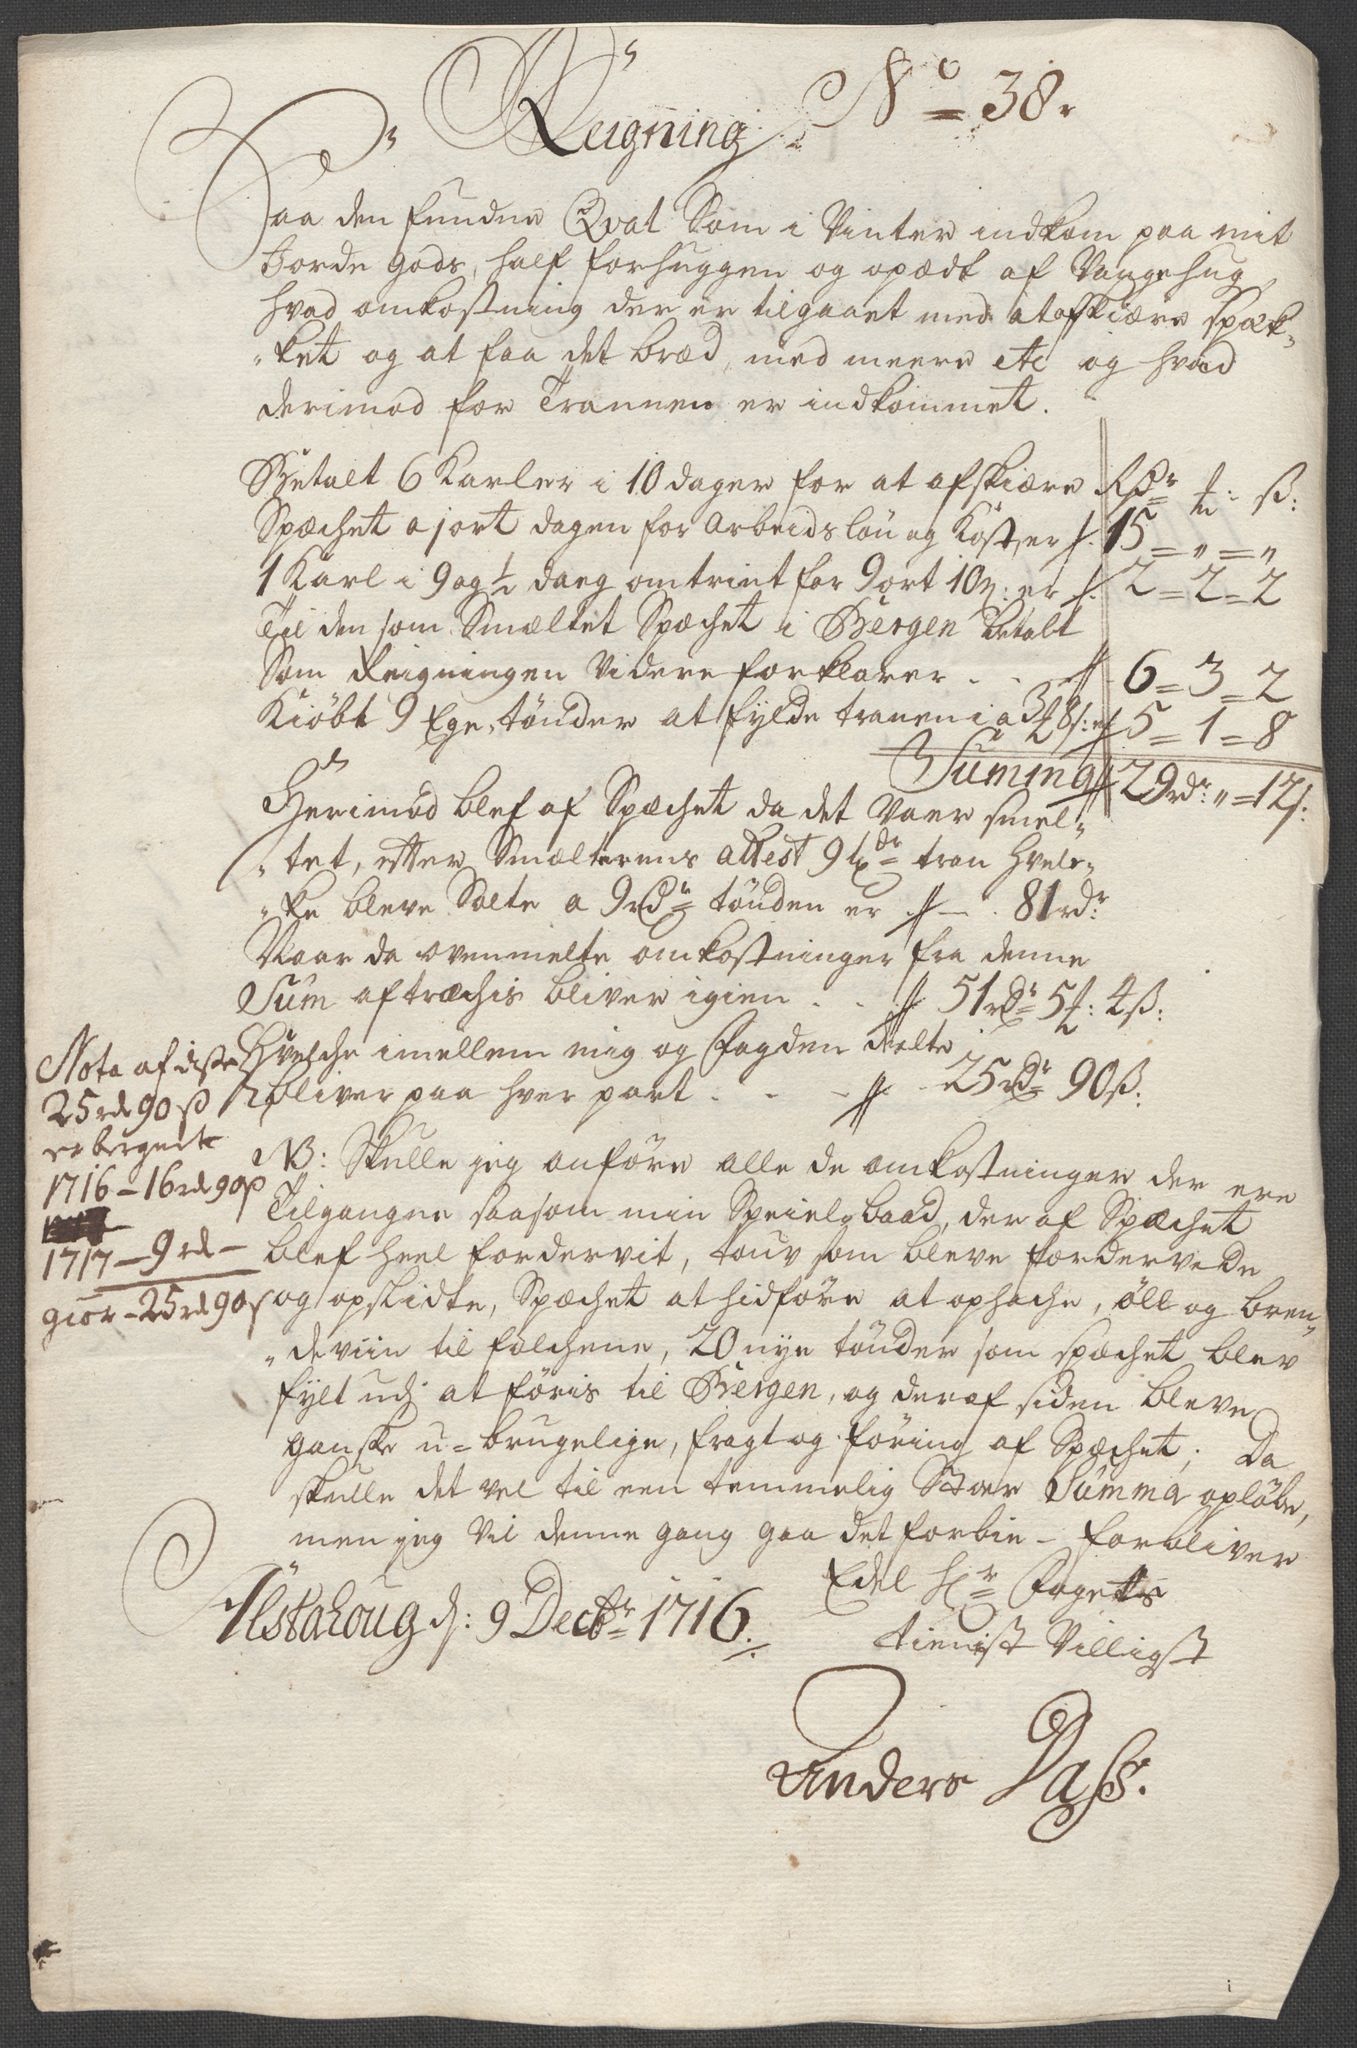 No = 38.
Reigning
Paa den fundne Qval Som i Vinter indkom paa mit
Jorde gods, half forhuggen og opædt af Vaugehug,
hvad omkostning der er tilgaaet med at afskiære spæk-
"ket og at faa det bræd, med meere etc og hvad
derimod for Trannen er indkommet.
Betalt 6 Karler i 10 dager for at afskiære Rdr t: ß:
Spæchet a jort dagen for arbeidslön og Kost, er 15 = " = "
1 Karl i 9 og ½ dag omtrint for 9 ort 10 ß: er 2 = 2 = 2
Til den som Smæltet Spæchet i Bergen betalt
Som Reigningen Videre forklarer . . 6 = 3 = 2
Kiöbt 9 Ege-tönder at fylde tranen i a 3 8ß: er 5 = 1 = 8
Summa 29 rdr: " = 12ß:
Herimod blef af Spæchet da det Vaar smel-
"tet, efter Smælterens attest 9 tdr tran hvel-
"ke bleve Solte a 9 Rdr tönden er - . 81 rdr:
Naar da ovenmelte omkostninger fra denne
Sum aftræchis bliver igien . . 51 rdr 5 t: 4ß:
Hvelche imellem mig og Fogden deelte
bliver paa hver part . - - 25 rdr 90ß:
Nota af disse
25 rdr 90 ß
er beregnet
1716 - 16 rd 90ß
1717 - 9 rd -
giör - 25 rd 90ß
NB: Skulle jeg anföre alle de omkostninger der ere
Tilgangne saasom min Speiels baad, der af Spæchet
blef heel fordervit, touv som bleve fordervede
og opslidte, Spæchet at hidföre at ophache, öll og bren-
"deviin til folchene, 20 nye tönder som spæchet blev
fylt udj at föris til Bergen, og deraf siden bleve
ganske u-brugelige, fragt og föring af Spæchet; Da
skulle det vel til een temmelig Stoer Summa oplöbe,
men jeg Vil denne gang gaa det forbie - forbliver
Edel Hr Fogetts
Alstahoug d: 9 Decbr 1716.
tienist Villigst
Anders Dass.